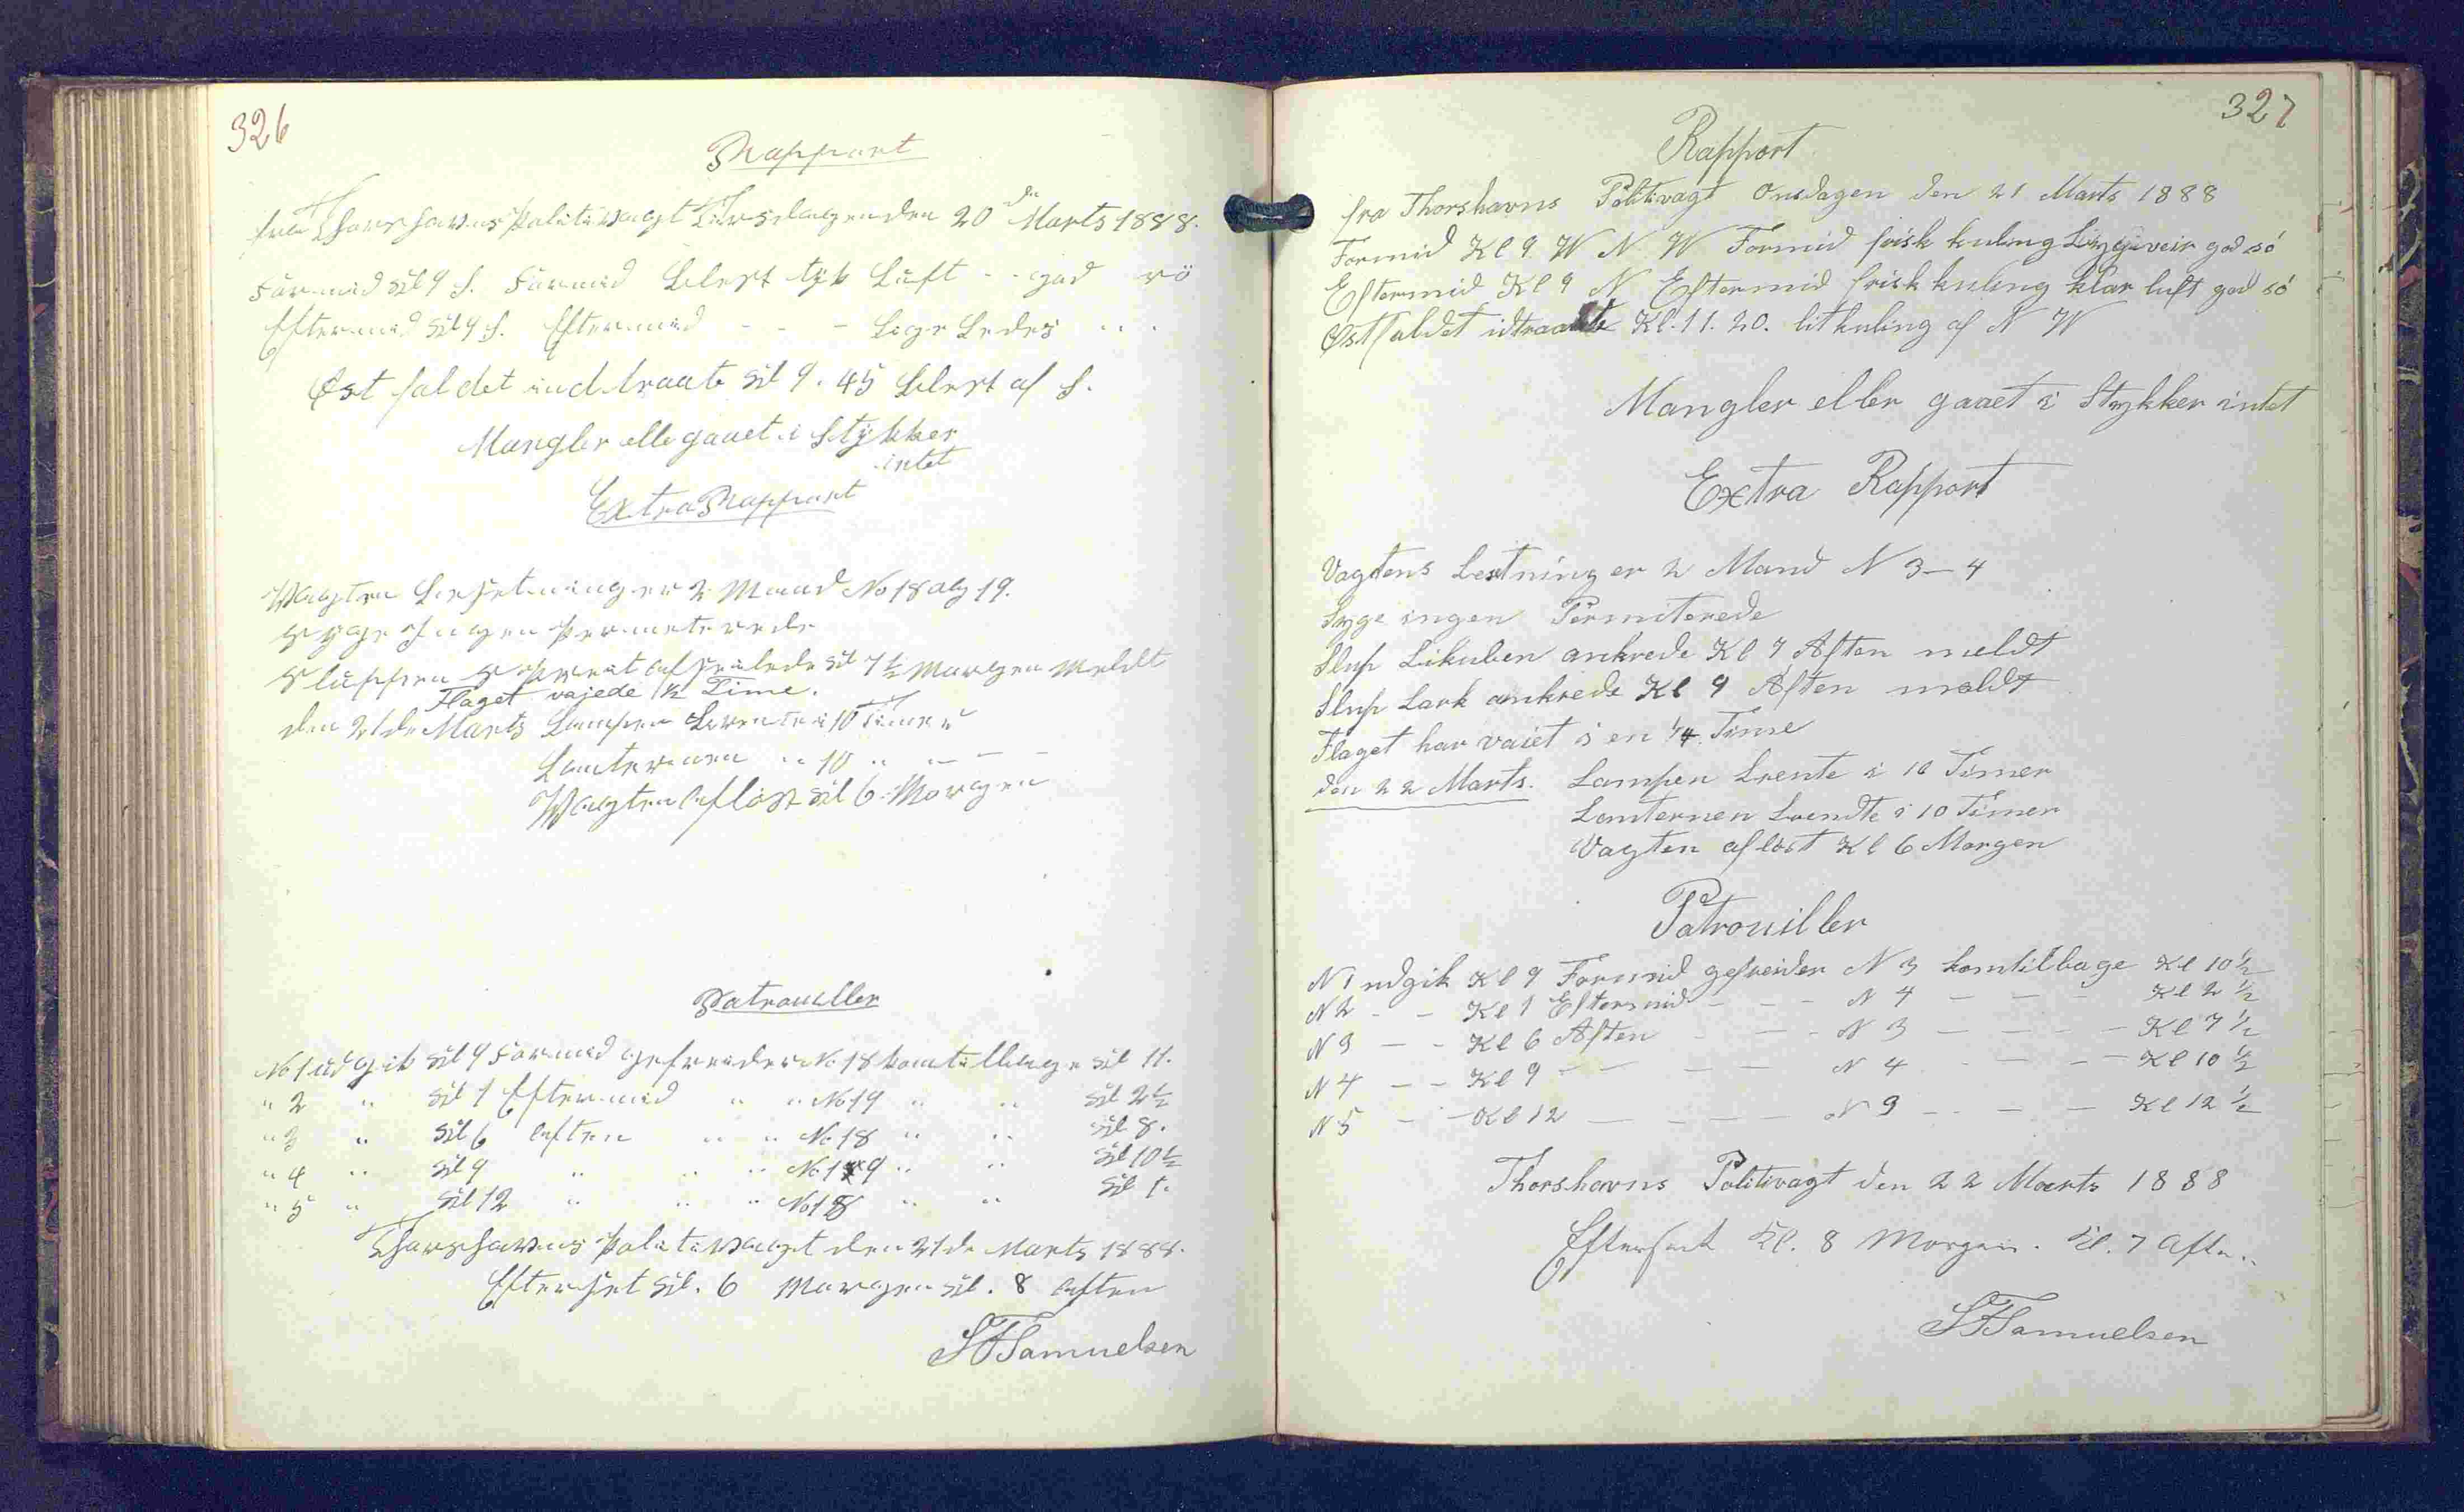 326
Rapport
fra Thorshavns Politivagt Tirsdagen den 20de Marts 1888.
Formid Kl 9 S. Formid blest tyk Luft - - god sö
Eftermid Kl 9 S. Eftermid - - - Lige Ledes " "
Øst faldet indtraate Kl 9.45 blest af S.
Mangler elle gaaet i Stykker
intet
Extra Rapport
Vagten besetning er 2 Mand No 18 og 19.
Syge Ingen Permeterede
Sluppen afseilede Kl 7½ Morgen Meldt
Flaget vajede ½ Time.
den 21de Marts Lampen brente i 10 Timer
Lanternen " 10 " - -
Vagten aflöst Kl 6 Morgen
Patrouiller
No 1 udgik Kl 9 Formid gefreider No 18 kom tilbage Kl 11.
" 2 " Kl 1 Eftermid " " No 19 " " Kl 2½
" 3 " Kl 6 Aften " " No 18 " " Kl 8.
" 4 " Kl 9 " " " No 19 " " Kl 10½
" 5 " Kl 12 " " " No 18 " " Kl 1.
Thorshavns Politivagt den 21de Marts 1888.
Efterset Kl. 6 Morgen Kl. 8 Aften
SFSamuelsen
327
Rapport
fra Thorshavns Politivagt Onsdagen den 21 Marts 1888
Formid Kl 9 W N W Formid frisk kuling god sö
Eftermid Kl 9 N Eftermid frisk kuling klar luft god sö
Østfaldet idtraatte Kl. 11.20. lit kuling af N W
Mangler eller gaaet i Stykker intet
Extra Rapport
Vagtens besetning er 2 Mand N 3-4
Syge ingen Permiterede
Slup Likuben ankrede Kl 7 Aften meldt
Slup Lark ankrede Kl 9 Aften meldt
Flaget har vaiet i en ¼ Time
den 22 Marts. Lampen brente i 10 Timer
Lanternen brendte i 10 Timer
Vagten aflöst Kl 6 Morgen
Patrouiller
N 1 udgik Kl 9 Formid gefreider N 3 kom tilbage Kl 10½
N 2 - - Kl 1 Eftermid - - - N 4 - - - Kl 2½
N 3 - - Kl 6 Aften - - - N 3 - - - - Kl 7½
N 4 - - Kl 9 - - - - N 4 - - - - Kl 10½
N 5 - - Kl 12 - - - - N 3 - - - - Kl 12½
Thorshavns Politivagt den 22 Marts 1888
Efterset Kl. 8 Morgen. Kl. 7 Aften.
SFSamuelsen